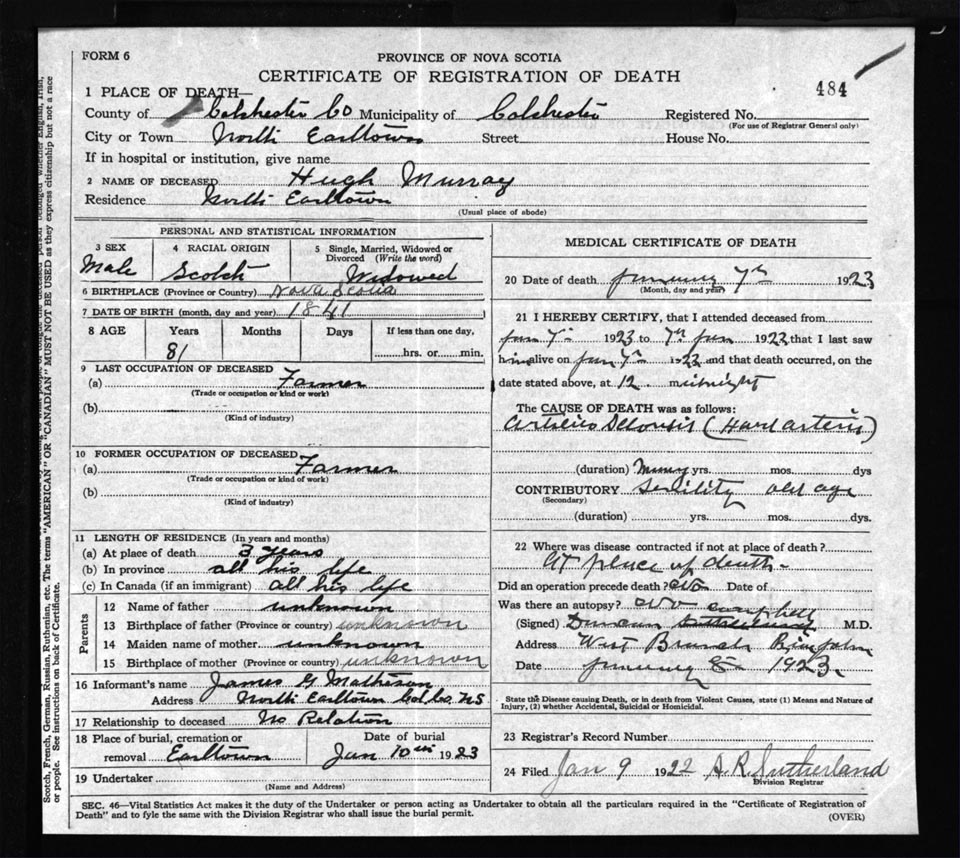 FORM 6
PROVINCE OF NOVA SCOTIA
CERTIFICATE OF REGISTRATION OF DEATH
484
1 PLACE OF DEATH—
County of Colchester Co Municipality of Colchester Registered No.
(For use of Registrar General only)
City or Town North Earltown Street House No.
If in hospital or institution, give name
2 NAME OF DECEASED Hugh Murray
Residence North Earltown
(Usual place of abode)
PERSONAL AND STATISTICAL INFORMATION
3 SEX Male
4 RACIAL ORIGIN Scotch
5 Single, Married, Widowed or Divorced (Write the word) Widowed
6 BIRTHPLACE (Province or Country) Nova Scotia
7 DATE OF BIRTH (month, day and year) 1841
8 AGE Years Months Days If less than one day,
81 hrs. or min.
9 LAST OCCUPATION OF DECEASED
(a) Farmer
(Trade or occupation or kind or work)
(b)
(Kind of industry)
10 FORMER OCCUPATION OF DECEASED
(a) Farmer
(Trade or occupation or kind of work)
(b)
(Kind of industry)
11 LENGTH OF RESIDENCE (In years and months)
(a) At place of death 3 years
(b) In province all his life
(c) In Canada (if an immigrant) all his life
Parents
12 Name of father unknown
13 Birthplace of father (Province or country) unknown
14 Maiden name of mother unknown
15 Birthplace of mother (Province or country) unknown
16 Informant's name James G Matheson
Address North Earltown Col. Co. NS
17 Relationship to deceased No Relation
18 Place of burial, cremation or removal Earltown
Date of burial Jan 10th 1923
19 Undertaker
(Name and Address)
MEDICAL CERTIFICATE OF DEATH
20 Date of death January 7th 1923
(Month, day and year)
21 I HEREBY CERTIFY, that I attended deceased from
Jan 7th 1923 to 7th Jan 1922 that I last saw
him alive on Jan 7th 1922 and that death occurred, on the
date stated above, at 12 midnight
The CAUSE OF DEATH was as follows:
(Hard arteries)
(duration) Many yrs. mos. dys
CONTRIBUTORY Senility old age
(Secondary)
(duration) yrs. mos. dys.
22 Where was disease contracted if not at place of death?
At place of death
Did an operation precede death? No Date of
Was there an autopsy? No
(Signed) Duncan Campbell M.D.
Address West Branch River John
Date January 8 1923
State the Disease causing Death, or in death from Violent Causes, state (1) Means and Nature of
Injury, (2) whether Accidental, Suicidal or Homicidal.
23 Registrar's Record Number
24 Filed Jan 9 1922 A. R. Sutherland
Division Registrar
SEC. 46—Vital Statistics Act makes it the duty of the Undertaker or person acting as Undertaker to obtain all the particulars required in the "Certificate of Registration of
Death" and to fyle the same with the Division Registrar who shall issue the burial permit.
(OVER)
Scotch, French, German, Russian, Ruthenian, etc. The terms "AMERICAN" OR "CANADIAN" MUST NOT BE USED as they express citizenship but not a race
or people. See instructions on back of Certificate.